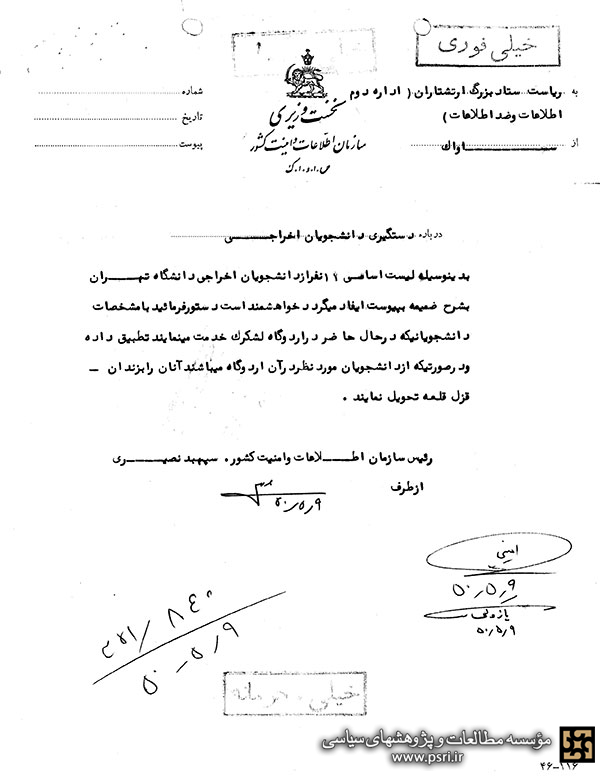 خیلی فوری
نخست وزیری
سازمان اطلاعات و امنیت کشور
س.ا.و.ا.ک
به ریاست ستاد بزرگ ارتشتاران ( اداره دوم
اطلاعات وضد اطلاعات )
از ســـاواك
شماره
تاریخ
پیوست
درباره دستگیری دانشجویان اخراجـــی
بدینوسیله لیست اسامی ۱۹ نفراز دانشجویان اخراجی دانشگاه تهـــران
بشرح ضمیمه بپیوست ایفاد میگردد خواهشمند است دستورفرمائید با مشخصات
دانشجویانیکه درحال حاضر دراردوگاه لشکرك خدمت مینمایند تطبیق داده
ودرصورتیکه از دانشجویان مورد نظردرآن اردوگاه میباشند آنان رابزندان –
قزل قلعه تحویل نمایند .
رئیس سازمان اطـــلاعات وامنیت کشور . سپهبد نصیـــری
ازطرف
۵۰٫۵٫۹
امینی
۵۰٫۵٫۹
۵۰٫۵٫۹
۵۰٫۵٫۹
خیلی محرمانه
مؤسسه مطالعات و پژوهشهای سیاسی
www.psri.ir
۴۶-۱۱۶